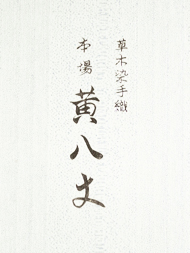 草木染手織
本場
黄八丈